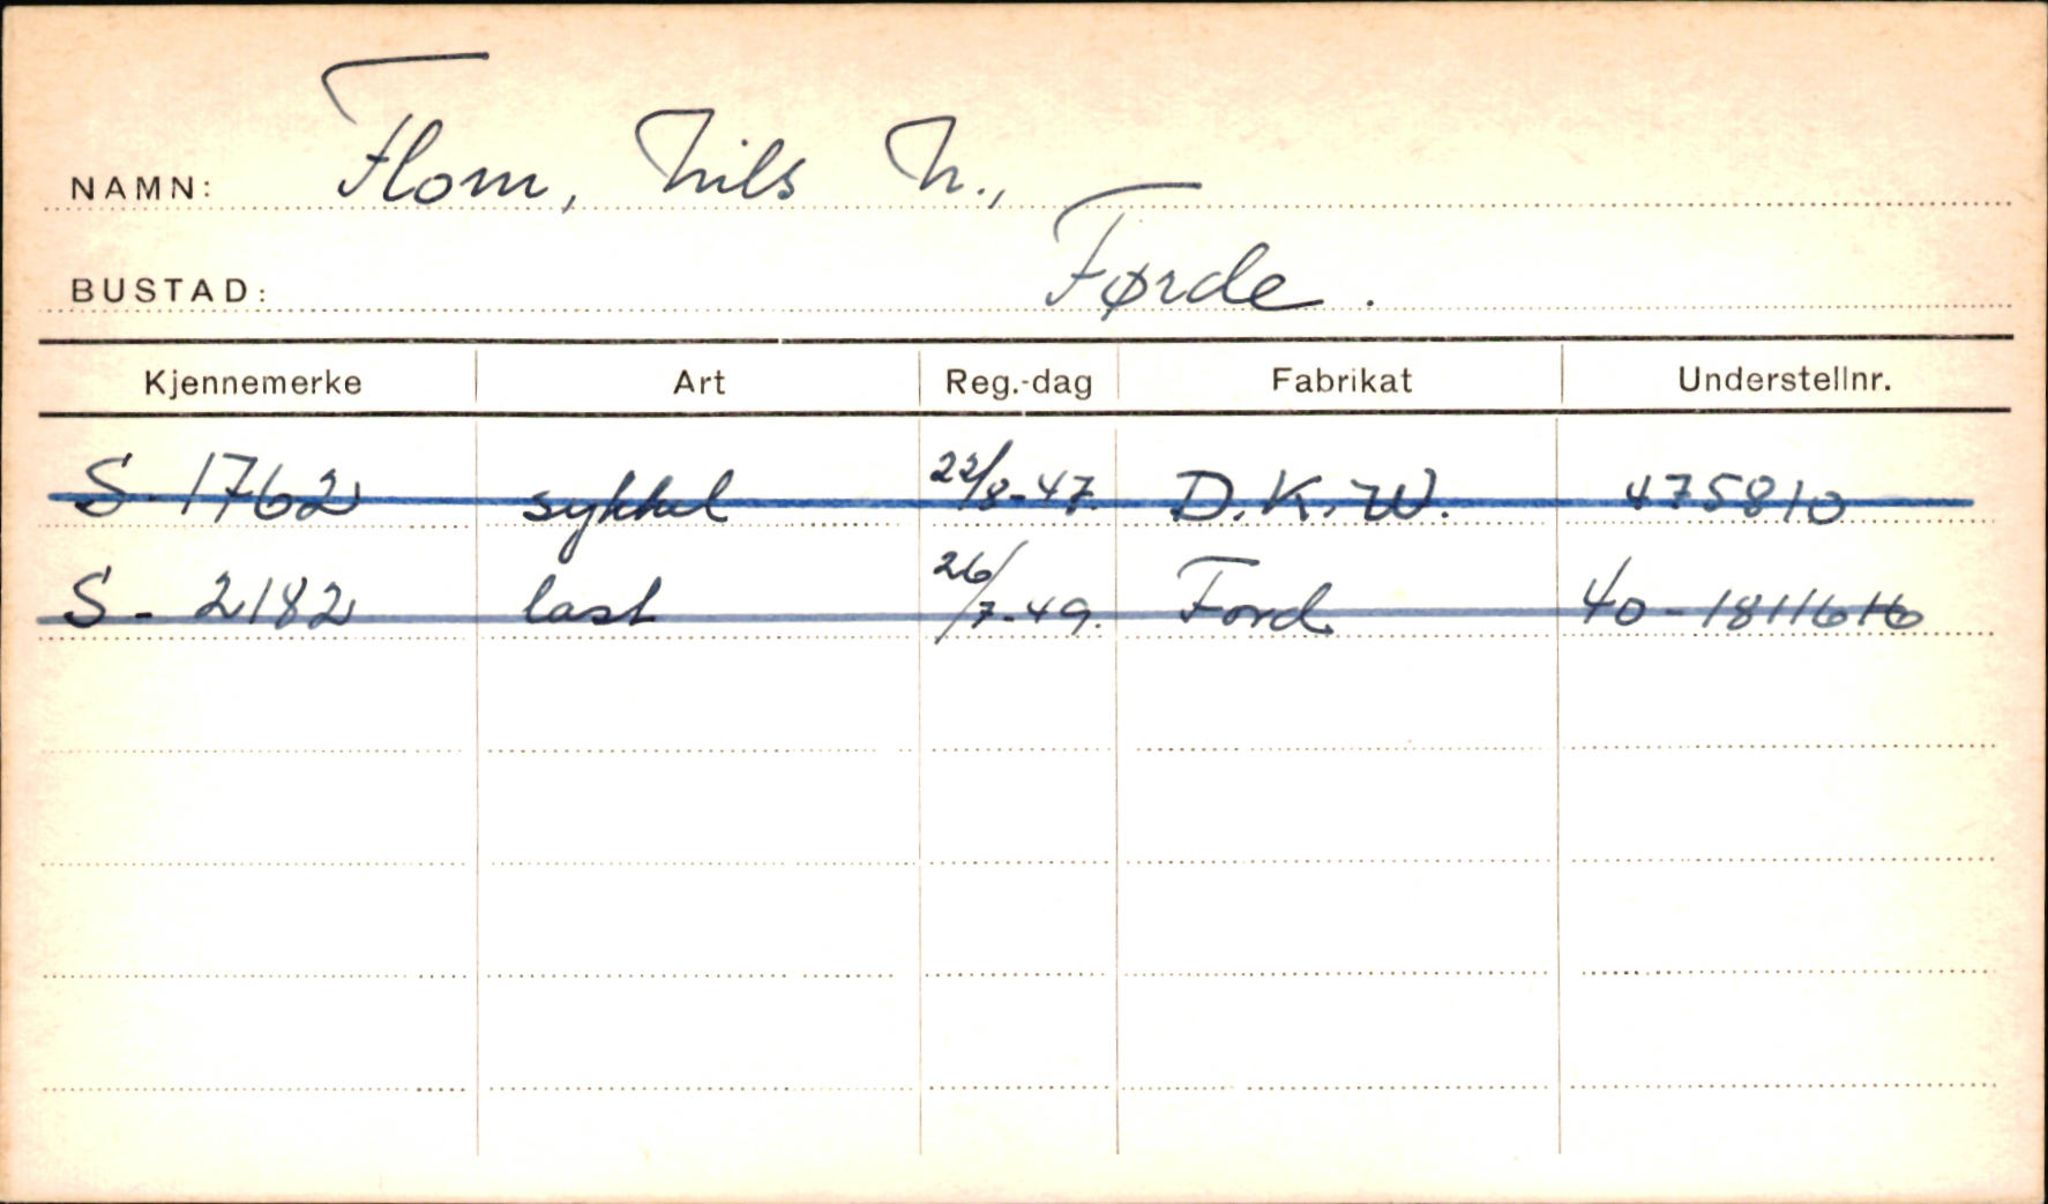 NAMN: Flom, Nils N.,
BUSTAD: Førde.
Kjennemerke Art Reg.-dag Fabrikat Understellnr.
S-1762 sykkel 22/8-47. D.K.W. 475810
S-2182 last 26/7-49. Ford 40-1811616